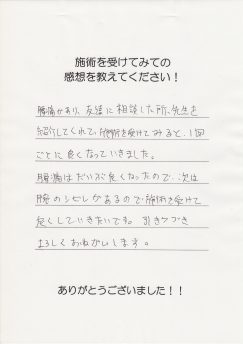 施術を受けてみての
感想を教えてください！
腰痛があり、友達に相談した所、先生を
紹介してくれて、施術を受けてみると、1回
ごとに良くなっていきました。
腰痛はだいぶ良くなったので、次は
腕のシビレがあるので施術を受けて
良くしていきたいです。引きつづき
よろしくおねがいします。
ありがとうございました！！